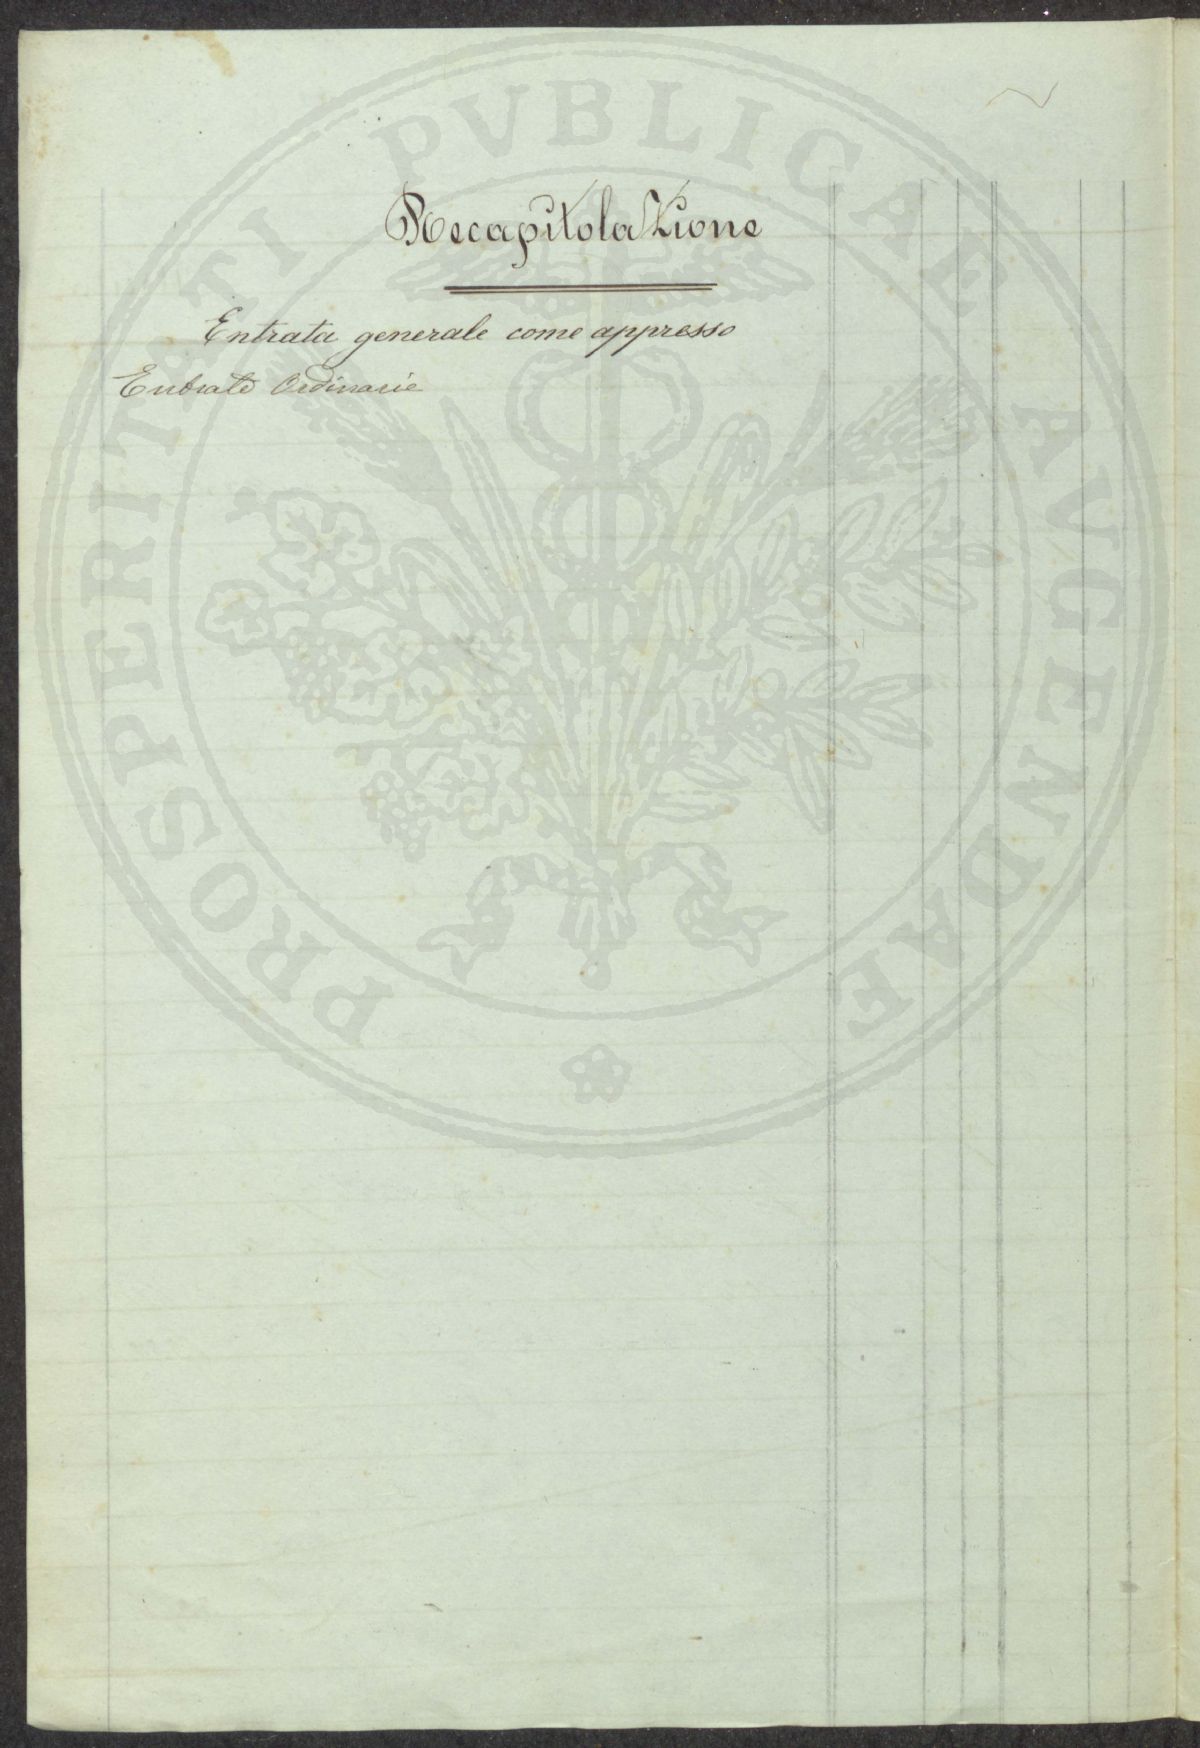 Recapitolazione
Entrata generale come appresso
Entrate Ordinarie
PROSPERITATI PVBLICAE AVGENDAE